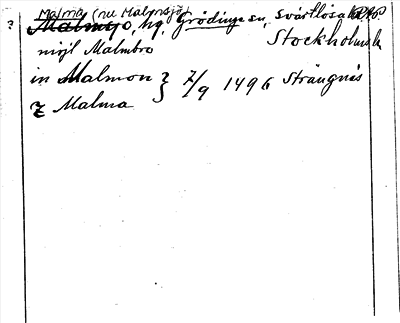 Malma (nu Malmsjö)
? Malmsjö, hg, Grödinge sn, Svartlösa
Stockholms l.
möjl Malmbro
in Malmon } 7/9 1496 Strängnäs
z Malma